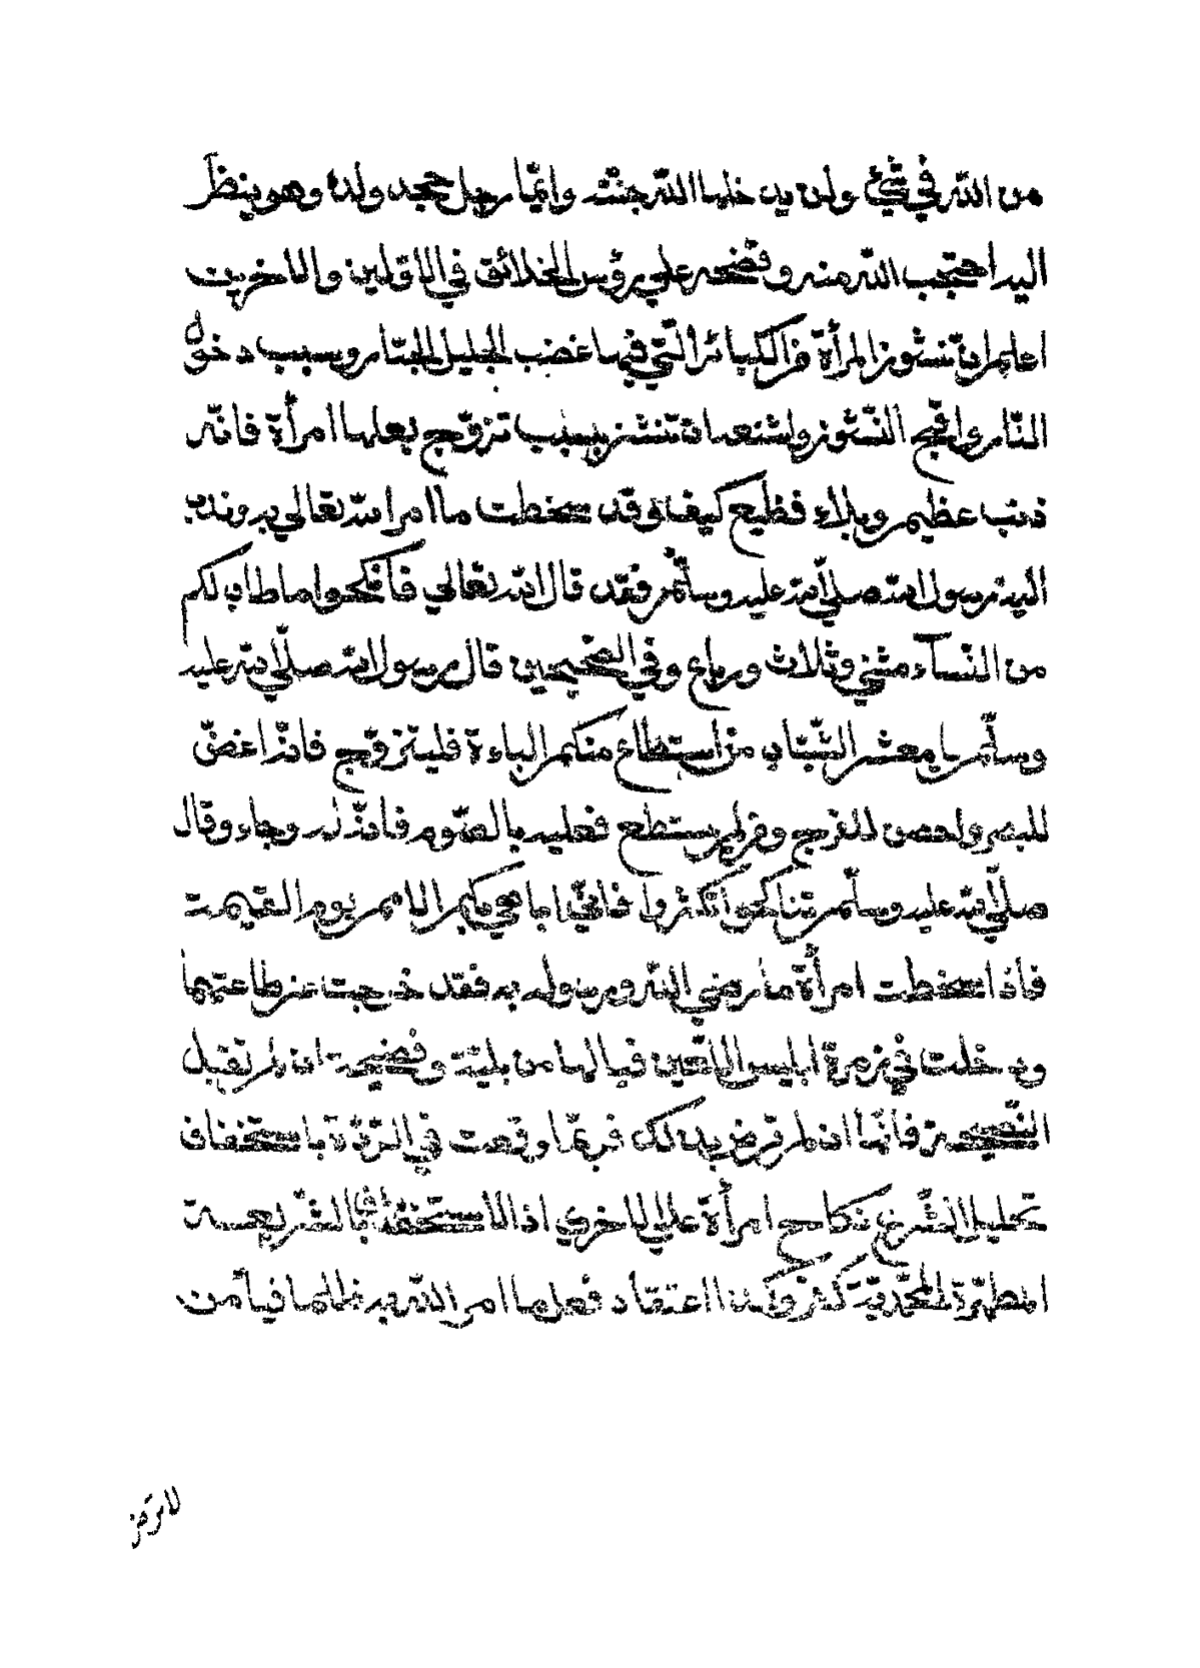 من الله في شيئ ولن يدخلها الله جنته وايما رجل جحد ولده وهو ينظر
اليه احتجب الله منه وفضحه علي رؤس الخلائق في الاولين والاخرين
اعلم ان نشوز المرأة من الكبائر التي فيها غضب الجليل الجبار وسبب دخول
النار واقبح النشوز واشنعه ان تنشز بسبب تزوج بعلها امرأة فانه
ذنب عظيم وبلاء فظيع كيف وقد سخطت ما امر الله تعالي به وندب
اليه رسول الله صلي الله عليه وسلم فقد قال الله تعالي فانكحوا ما طاب لكم
من النسآء مثني وثلاث ورباع وفي الصحيحين قال رسول الله صلي الله عليه
وسلم يا معشر الشباب من استطاع منكم الباءة فليتزوج فانه اغض
للبصر واحصن للفرج ومن لم يستطع فعليه بالصوم فانه له وجاء وقال
صلي الله عليه وسلم تناكحوا تكثروا فاني اباهي بكم الامم يوم القيمة
فاذا سخطت امرأة ما رضي الله ورسوله به فقد خرجت عن طاعتهما
ودخلت في زمرة ابليس اللعين فيا لها من بلية وفضيحة ان لم تقبل
النصيحة فانها ان لم ترض بذلك فربما وقعت في الردة باستخفاف
تحليل الشرع نكاح امرأة علي الاخري اذ الاستخفاف بالشريعة
المطهرة المحمدية كفر وكذا اعتقاد فعل ما امر الله به ظلما فيا من
لا ترض